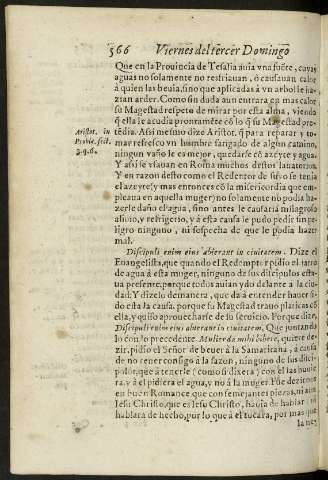 566 Viernes del tercer Domingo
Que en la Prouincia de Tesalia auia vna fuẽte, cuyas
aguas no solamente no resfriauan, ò causauan calor
à quien las beuia, sino que aplicadas à vn arbol le ha-
zian arder. Como sin duda aun entrara en mas calor
su Magestad respeto de mirar por esta alma, viendo
q̃ ella le acudia prontamẽte cõ lo q̃ su Magestad pre-
tẽdia. Assi mesmo dize Aristot. q̃ para reparar y to-
Aristot. in
mar refresco vn hombre fatigado de algun camino,
Proble. sect.
ninguno es mejor, que
3. q. 6.
Y assi se vsauan en Roma muchos destos lauatorios.
Y en razon desto como el Redentor de suyo se tenia
el azeyte; y mas entonces cõ la misericordia que em-
pleaua en aquella muger) no solamente no podia ha-
zerle daño el agua, sino antes le causaria milagroso
aliuio, y refrigerio, y à esta causa le pudo pedir sin pe-
ligro ninguno, ni sospecha de que le podia hazer
mal.
Discipuli enim eius abierant in ciuitatem. Dize el
Euangelista, que quando el Redemptor pidio el jarro
de agua à esta muger, ninguno de sus dicipulos esta-
ua presente, porque todos auian ydo delante a la ciu-
dad. Y dizelo demanera, que da à entender hauer si-
do esta la causa, porque su Magestad trauo platicas cõ
ella, y quiso aprouecharse de su seruicio. Porque dize,
Discipuli enim eius abierant in ciuitatem. Que juntando
lo con lo precedente. Mulier da mihi bibere, quiere de-
zir, pidio el Señor de beuer à la Samaritana, à causa
de no tener consigo à la sazon, ninguno de sus dici-
polos, que à tenerle (como si dixera) con el las huuie
ra, y à el pidiera el agua, y no à la muger. Fue dezirnos
en buen Romance que con semejantes piezas, ni aun
Iesu Christo, que es Iesu Christo, hauia de hablar ni
hablara de hecho, por lo que à el tocara, por mas que
la nes